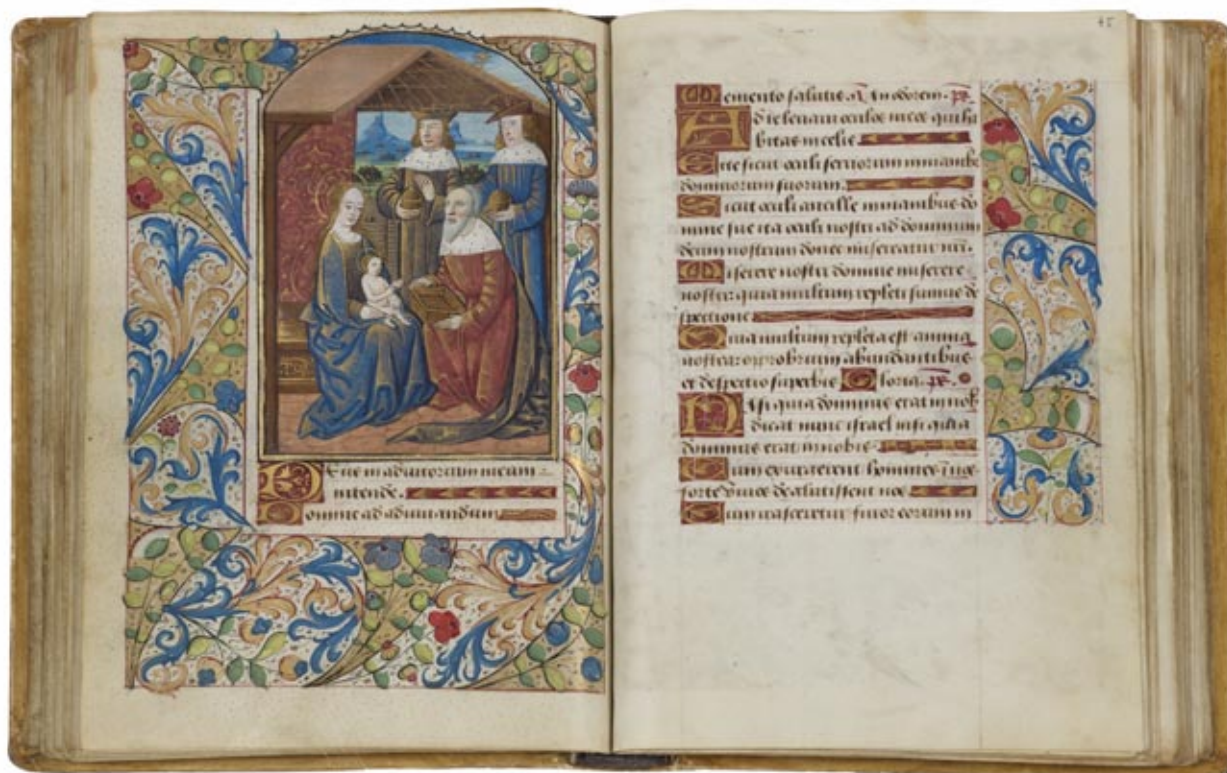 Deus in adiutorium meum
intende.
Domine ad adiuvandum
45
Memento salutis a In odorem. ps
Ad te levavi oculos meos qui ha
bitas in celis.
Ecce sicut oculi servorum in manibz
dominorum suorum.
Sicut oculi ancille in manibus do
mine sue ita oculi nostri ad dominum
deum nostrum donec misereatur nri.
Miserere nostri domine miserere
nostri quia multum repleti sumus de
spectione
Quia multum repleta est anima
nostra opprobrium abundantibus
et despectio superbis Gloria. ps.
Nisi quia dominus erat in nob
dicat nunc israel nisi quia
dominus erat in nobis
Cum exurgerent homines in nos
forte vivos deglutissent nos
Cum irasceretur furor eorum in